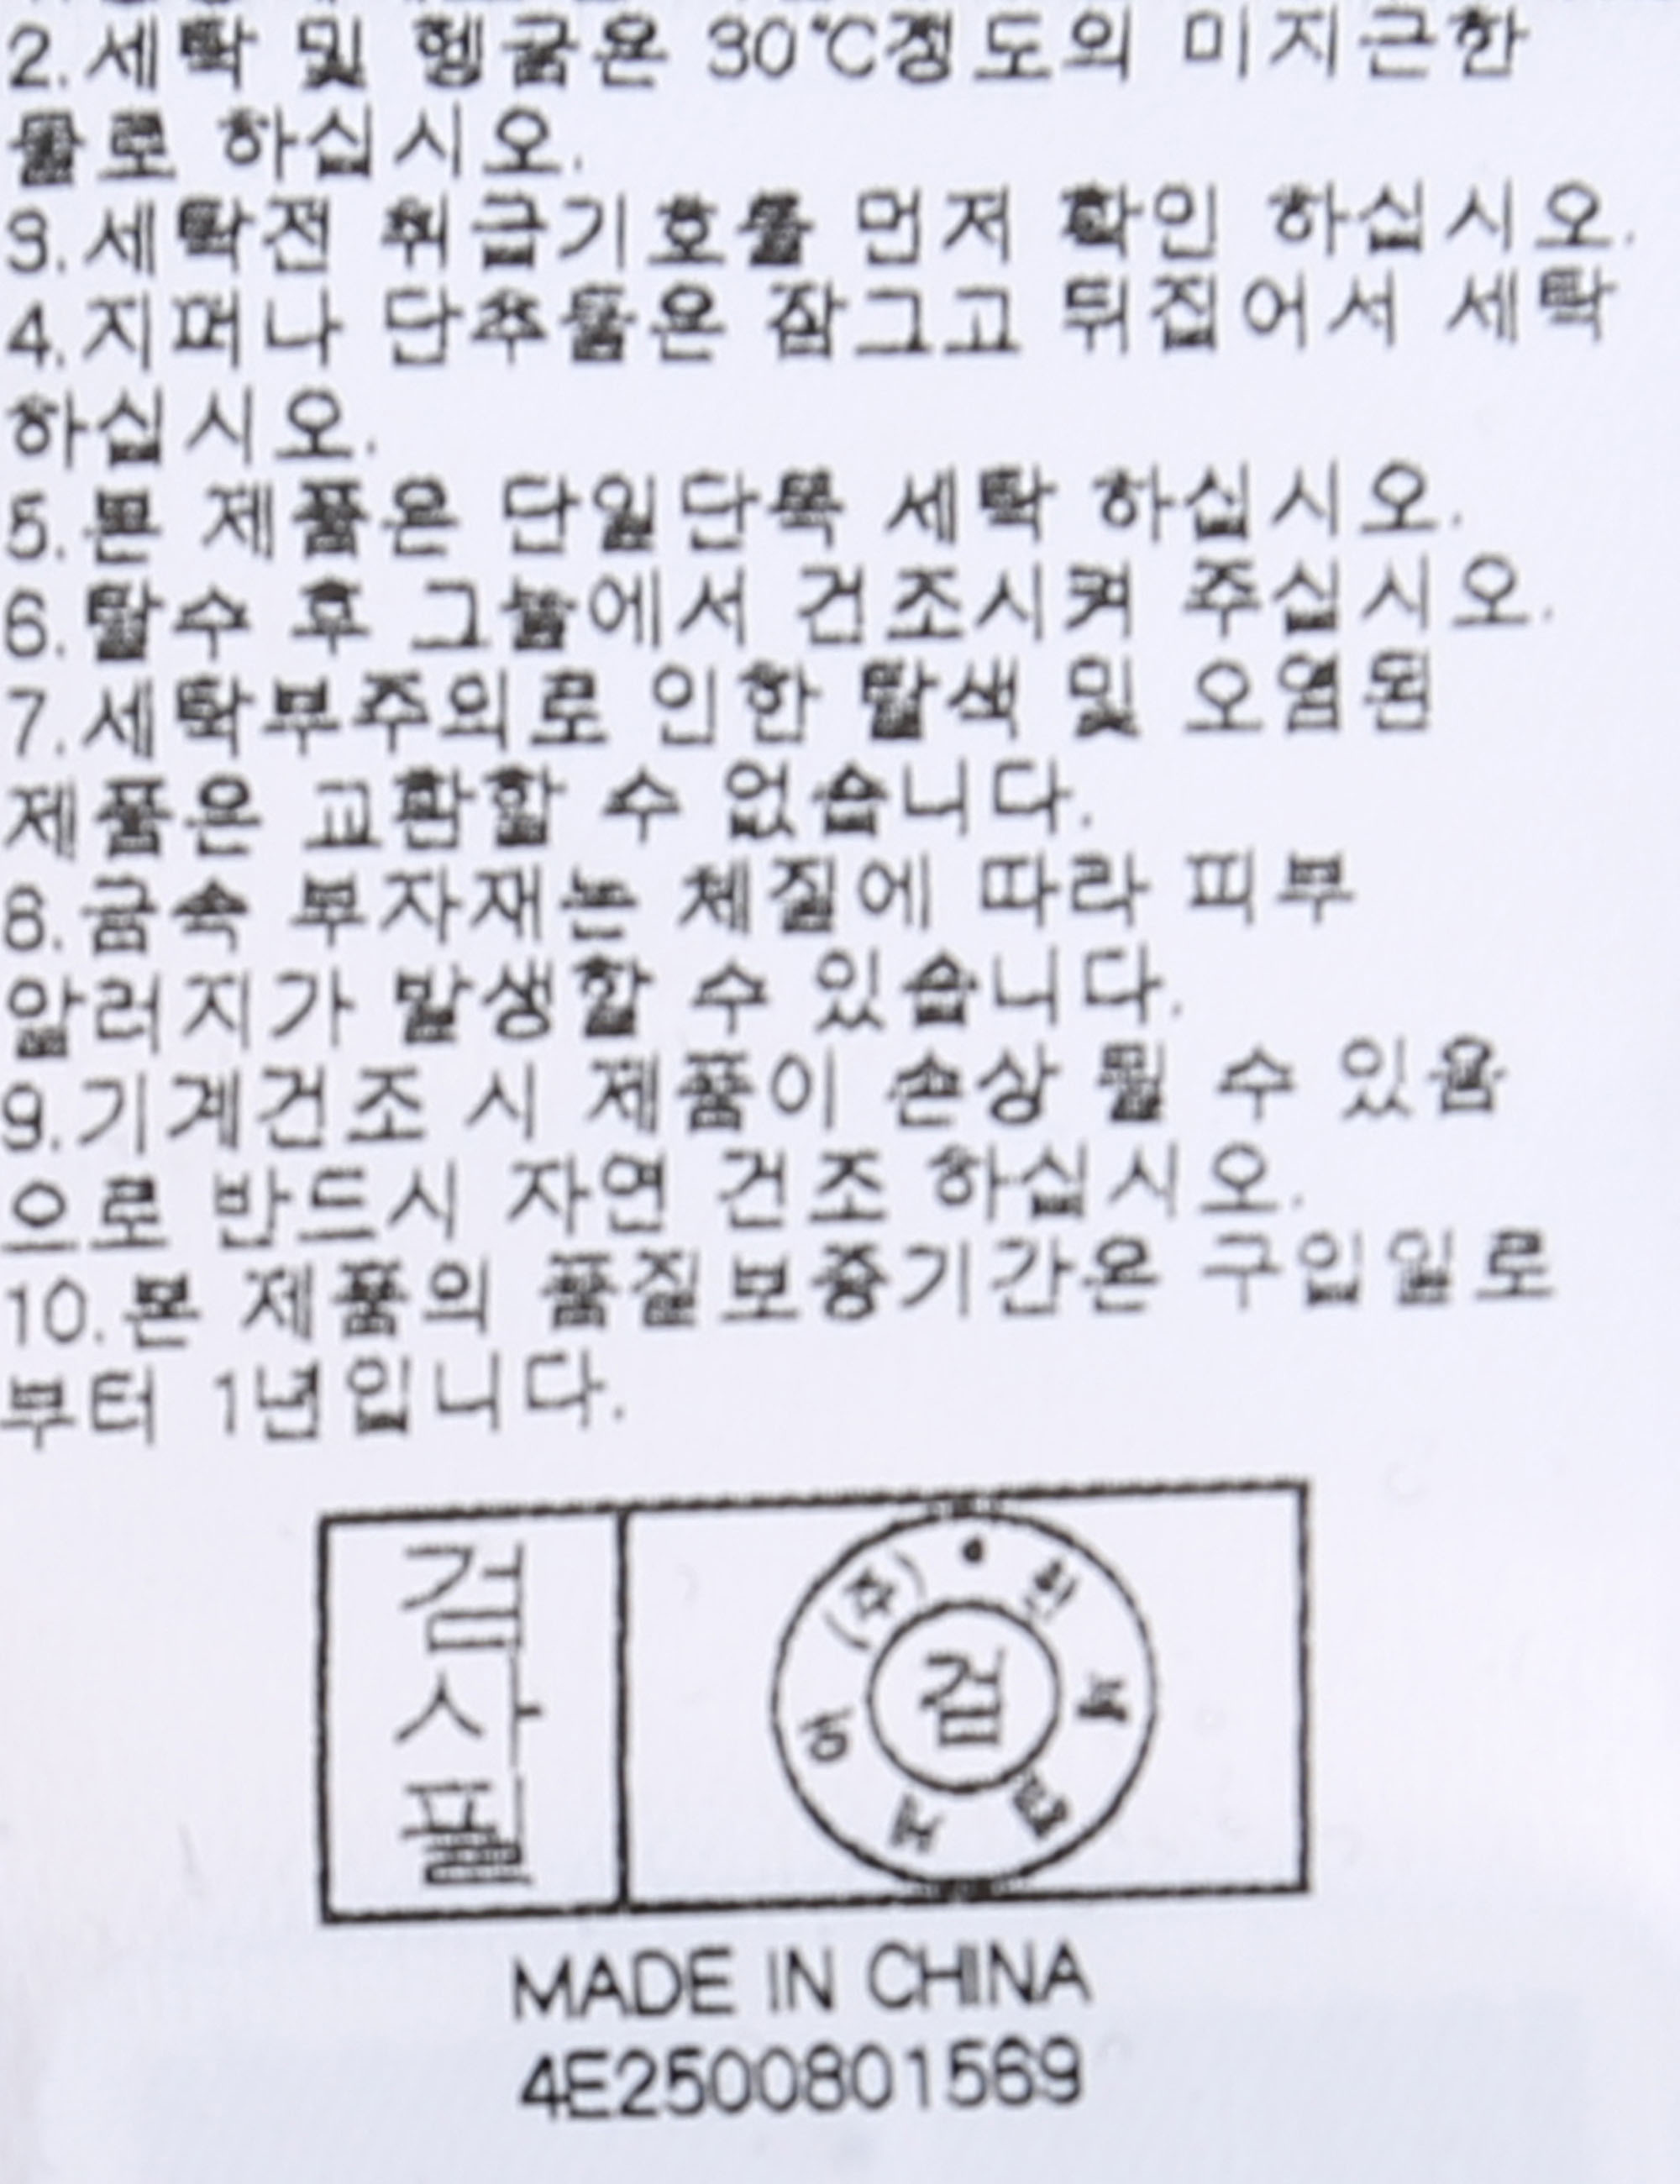 2.세탁 및 헹굼은 30℃정도의 미지근한
물로 하십시오.
3.세탁전 취급기호를 먼저 확인 하십시오.
4.지퍼나 단추들은 잠그고 뒤집어서 세탁
하십시오.
5.본 제품은 단일단독 세탁 하십시오.
6.탈수 후 그늘에서 건조시켜 주십시오.
7.세탁부주의로 인한 탈색 및 오염된
제품은 교환할 수 없습니다.
8.금속 부자재는 체질에 따라 피부
알러지가 발생할 수 있습니다.
9.기계건조 시 제품이 손상 될 수 있음
으로 반드시 자연 건조 하십시오.
10.본 제품의 품질보증기간은 구입일로
부터 1년입니다.
검사필
(주)
검
MADE IN CHINA
4E2500801569